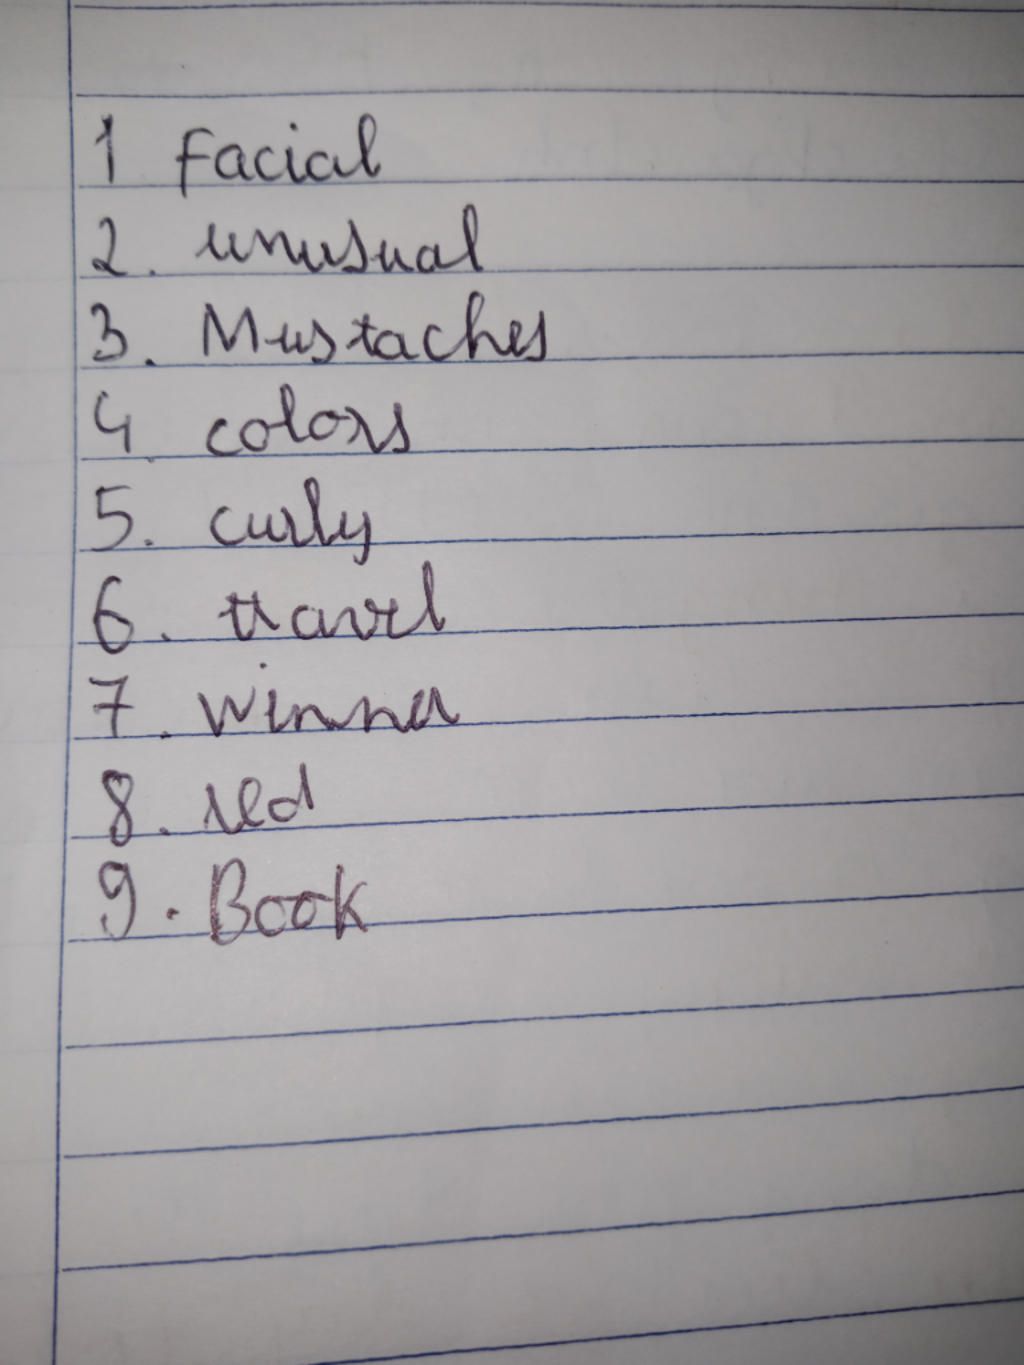 1 facial
2. unusual
3. Mustaches
4. colors
5. curly
6. travel
7. winner
8. red
9. Book